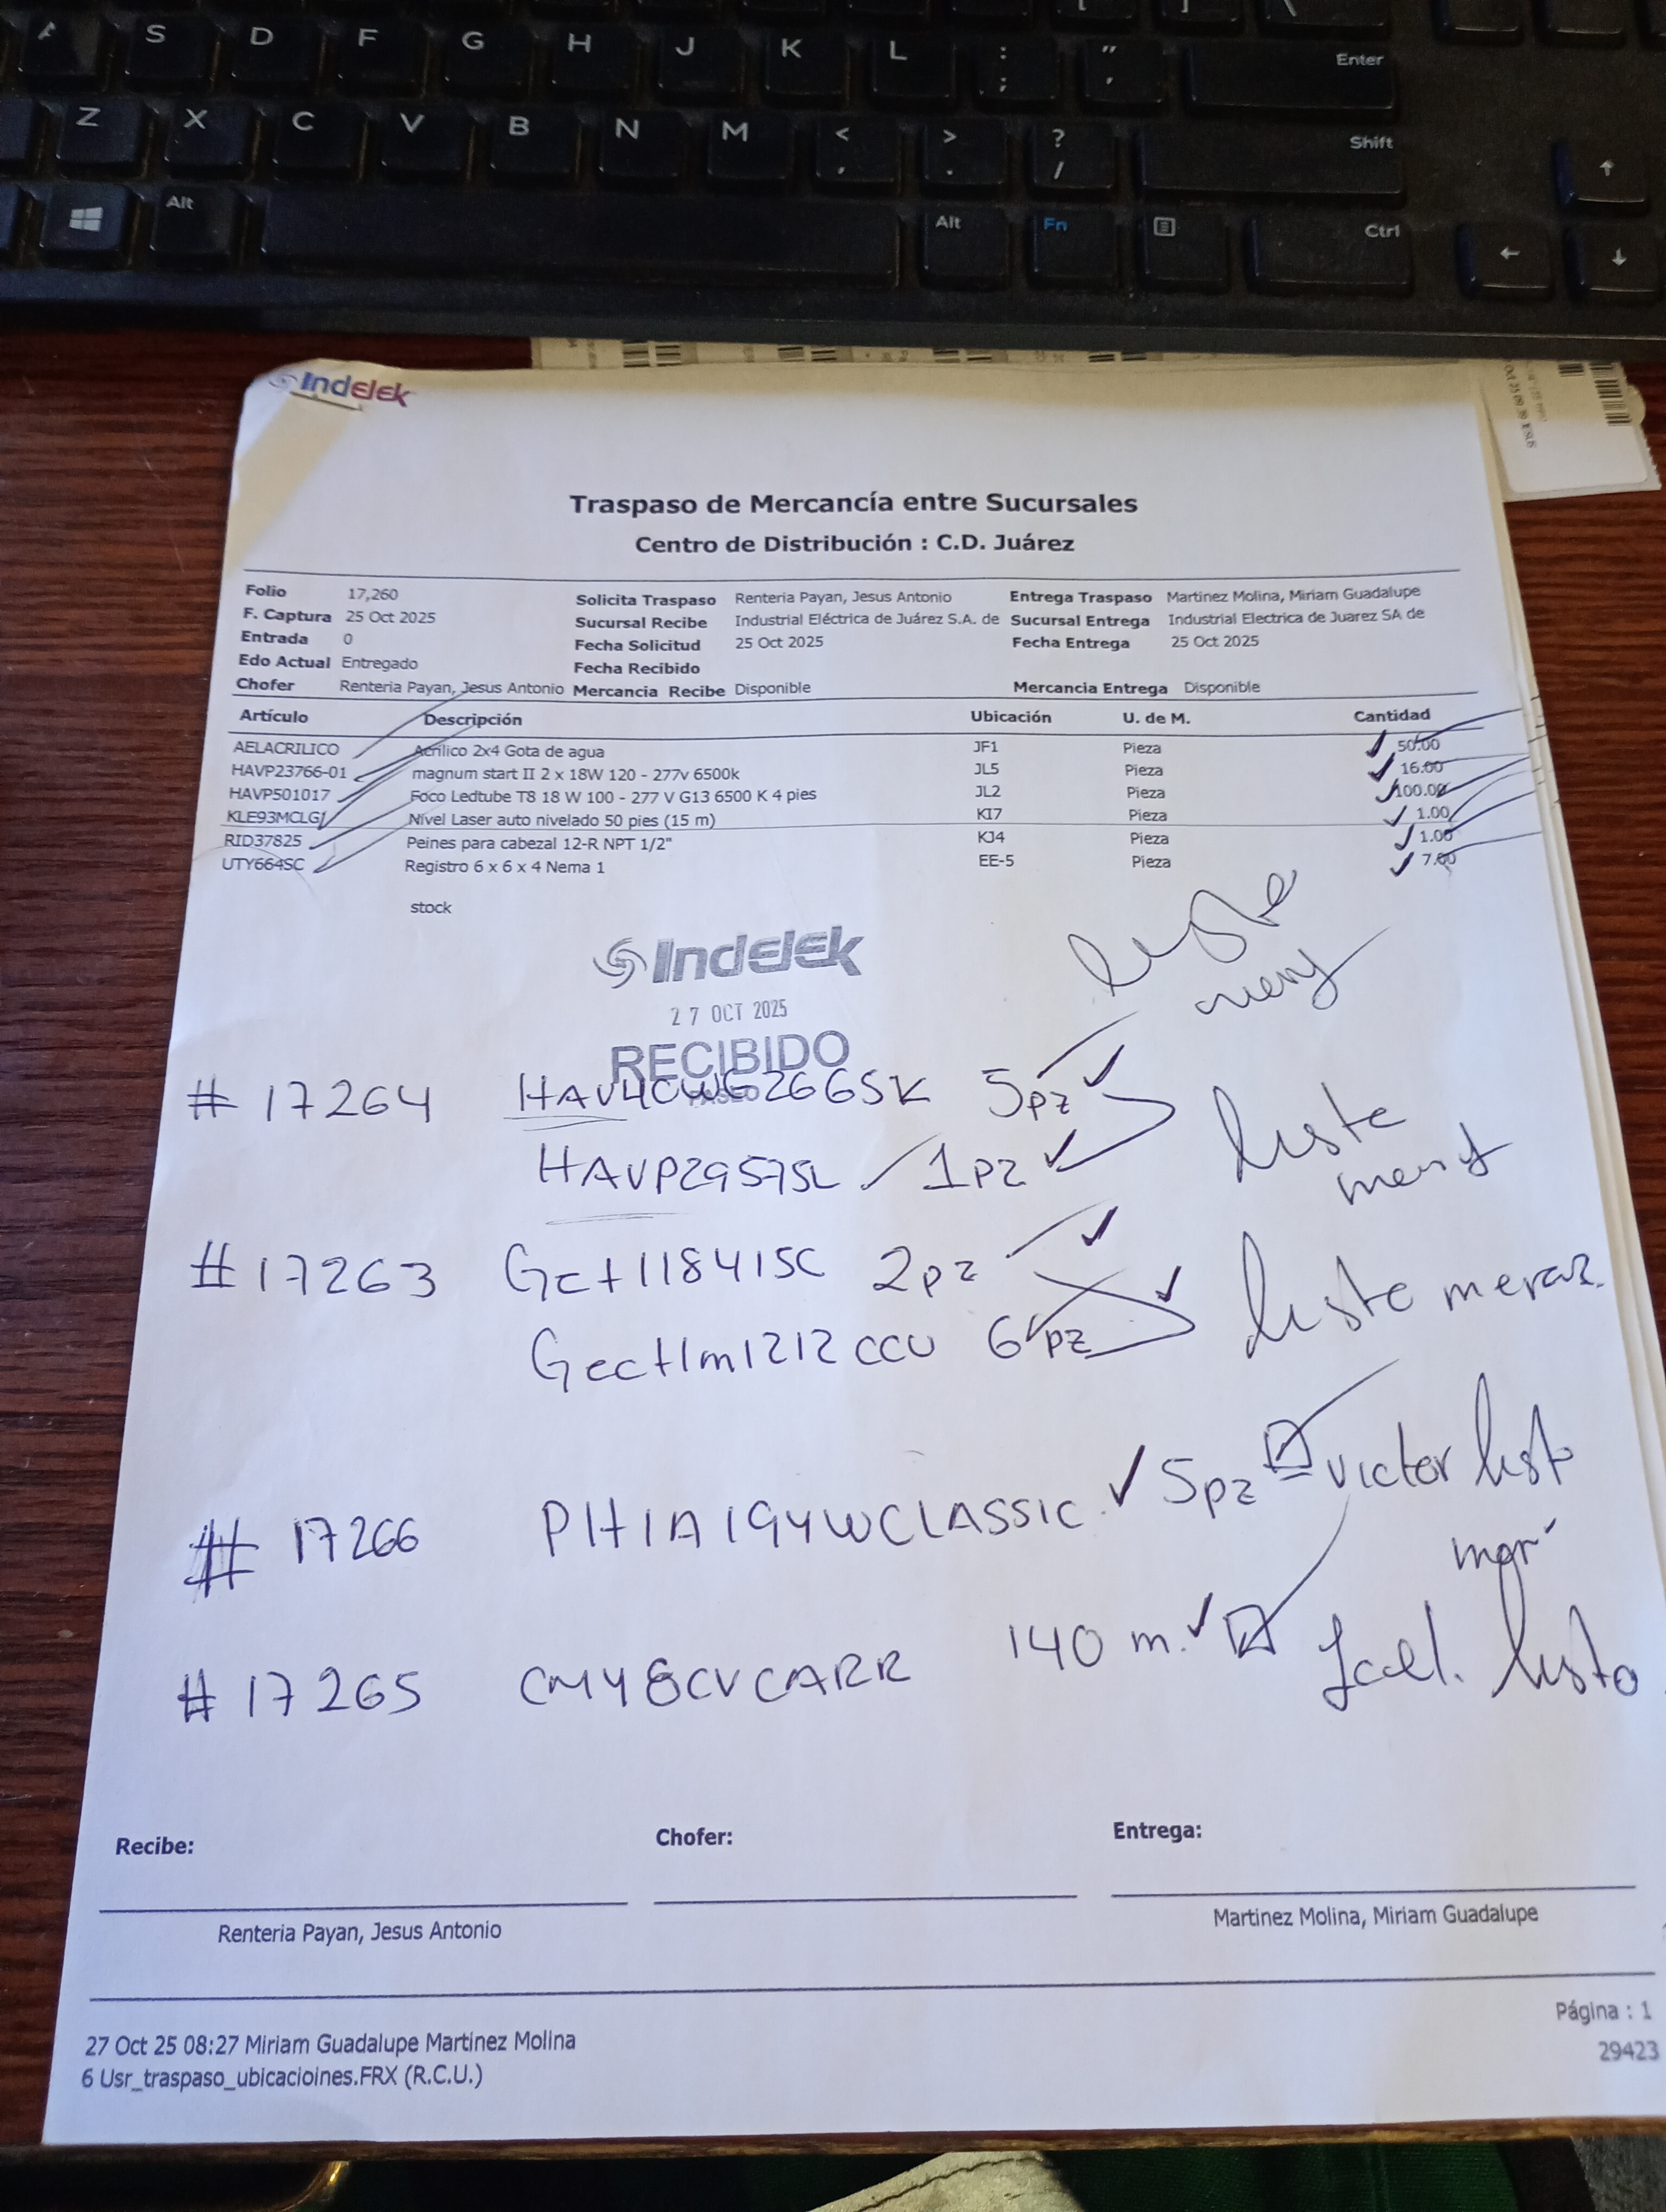 A S D F G H J K L : ; " ' Enter
Z X C V B N M < , > . ? / Shift
Alt Alt Fn Ctrl
Indelek
Traspaso de Mercancía entre Sucursales
Centro de Distribución : C.D. Juárez
Folio 17,260 Solicita Traspaso Renteria Payan, Jesus Antonio Entrega Traspaso Martinez Molina, Miriam Guadalupe
F. Captura 25 Oct 2025 Sucursal Recibe Industrial Eléctrica de Juárez S.A. de Sucursal Entrega Industrial Electrica de Juarez SA de
Entrada 0 Fecha Solicitud 25 Oct 2025 Fecha Entrega 25 Oct 2025
Edo Actual Entregado Fecha Recibido
Chofer Renteria Payan, Jesus Antonio Mercancia Recibe Disponible Mercancia Entrega Disponible
Artículo Descripción Ubicación U. de M. Cantidad
AELACRILICO Acrilico 2x4 Gota de agua JF1 Pieza 50.00
HAVP23766-01 magnum start II 2 x 18W 120 - 277v 6500k JL5 Pieza 16.00
HAVP501017 Foco Ledtube T8 18 W 100 - 277 V G13 6500 K 4 pies JL2 Pieza 100.00
KLE93MCLGJ Nivel Laser auto nivelado 50 pies (15 m) KI7 Pieza 1.00
RID37825 Peines para cabezal 12-R NPT 1/2" KJ4 Pieza 1.00
UTY664SC Registro 6 x 6 x 4 Nema 1 EE-5 Pieza 7.00
stock
Indelek
27 OCT 2025
RECIBIDO
PASEO
# 17264 5pz
HAVP29575L 1pz
# 17263 2pz
Gectlm1212CCU 6pz listo meraz
# 17266 PHIA194WCLASSIC 5pz victor listo
# 17265 CM48CVCARR 140 m. Jael. listo
Recibe: Chofer: Entrega:
Renteria Payan, Jesus Antonio Martinez Molina, Miriam Guadalupe
Página : 1
27 Oct 25 08:27 Miriam Guadalupe Martínez Molina 29423
6 Usr_traspaso_ubicacioines.FRX (R.C.U.)